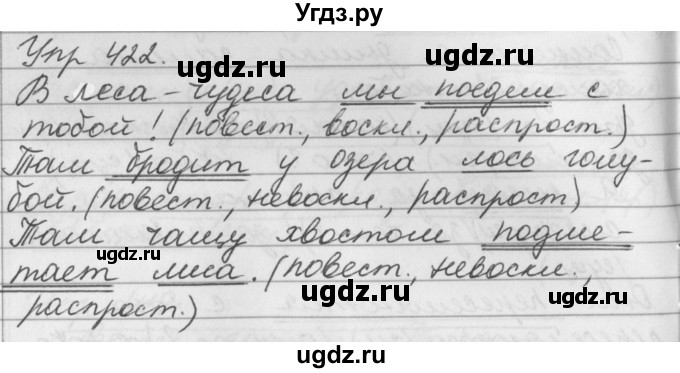 Угдз.ру
Упр 422.
В леса-чудеса мы поедем с
тобой! (повест., воскл., распрост.)
Там бродит у озера лось голу-
бой. (повест., невоскл., распрост)
Там чащу хвостом подме-
тает лиса. (повест., невоскл.,
распрост.)
ugdz.ru
ugdz.ru
ugdz.ru
ugdz.ru
ugdz.ru
ugdz.ru
ugdz.ru
ugdz.ru